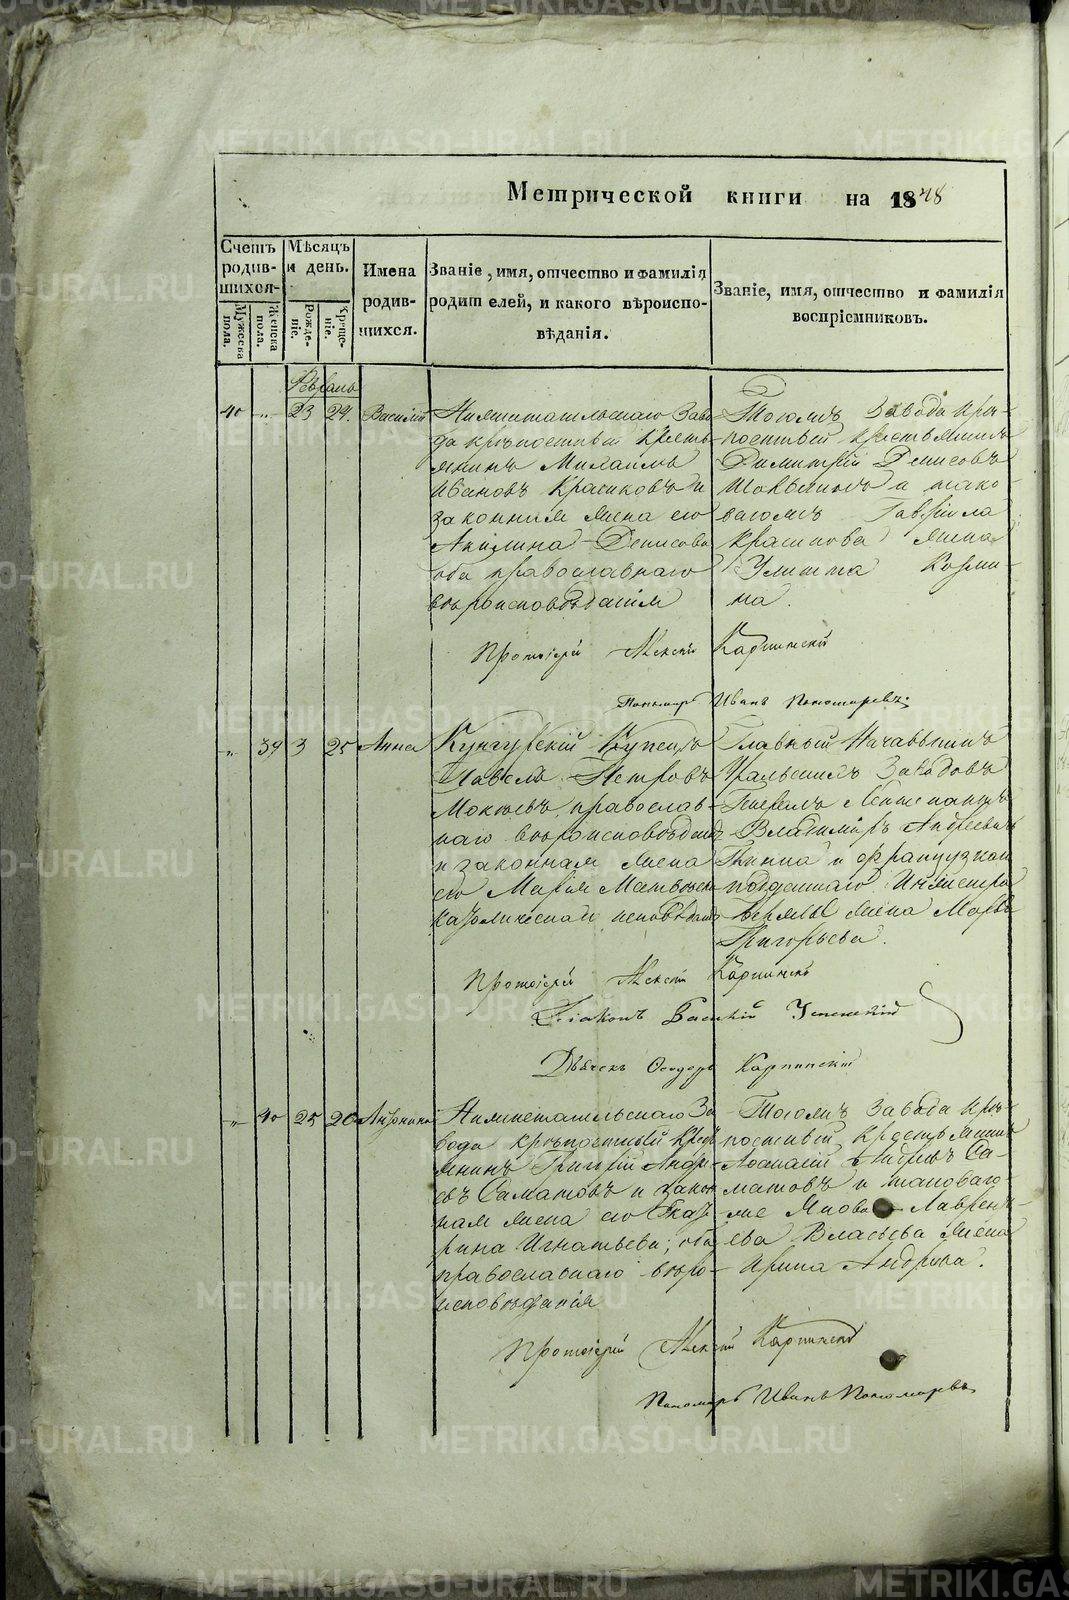 Метрической книги на 1848
Счетъ родившихся.
Мѣсяцъ и день.
Имена родившихся.
Званіе, имя, отчество и фамилія
родителей, и какого вѣроиспо-
вѣданія.
Званіе, имя, отчество и фамилія
воспріемниковъ.
Мужеска пола.
Женска пола.
Рожденіе.
Крещеніе.
Февраль
40 „ 23 24. Василій
Нижнетагильскаго Заво-
да крѣпостный кресть-
янинъ Михаилъ
Ивановъ Красиковъ и
законная жена его
Акилина Денисова
оба православнаго
вѣроисповѣданія
Тогожъ Завода крѣ-
постный крестьянинъ
Димитрій Денисовъ
и тако-
вагожъ Гавріила
Красикова жена
Улита Козми-
на.
Протоіерей Алексій Карпинскій
Пономарь Иванъ Пономаревъ.
„ 39 3 25 Анна
Кунгурскій Купецъ
Павелъ Петровъ
православ-
наго вѣроисповѣданія
и законная жена
его Марія Матвѣева
католическаго исповѣданія
Главный Начальникъ
Уральскихъ Заводовъ
Генералъ Лейтенантъ
Владиміръ Андреевичъ
Глинка и французкаго
подданнаго Инженера
жена Марья
Григорьева.
Протоіерей Алексій Карпинскій
Діаконъ Василій Успенскій
Дьячекъ Ѳеодоръ Карпинскій
„ 40 25 26 Антонина
Нижнетагильскаго За-
вода крѣпостный крест-
янинъ Григорій Андре-
евъ Саматовъ и закон-
ная жена его Екате-
рина Игнатьева, оба
православнаго вѣро-
исповѣданія
Тогожъ Завода крѣ-
постный крестьянинъ
Аѳанасій Андреевъ Са-
матовъ и таковаго-
же Лаврень-
ева Власьева жена
Ирина Андреева.
Протоіерей Алексій Карпинскій
Пономарь Иванъ Пономаревъ
METRIKI.GASO-URAL.RU